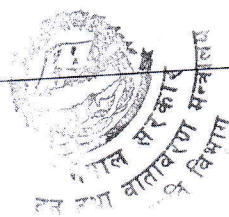 नेपाल सरकार
वन तथा वातावरण मन्त्रालय
विभाग